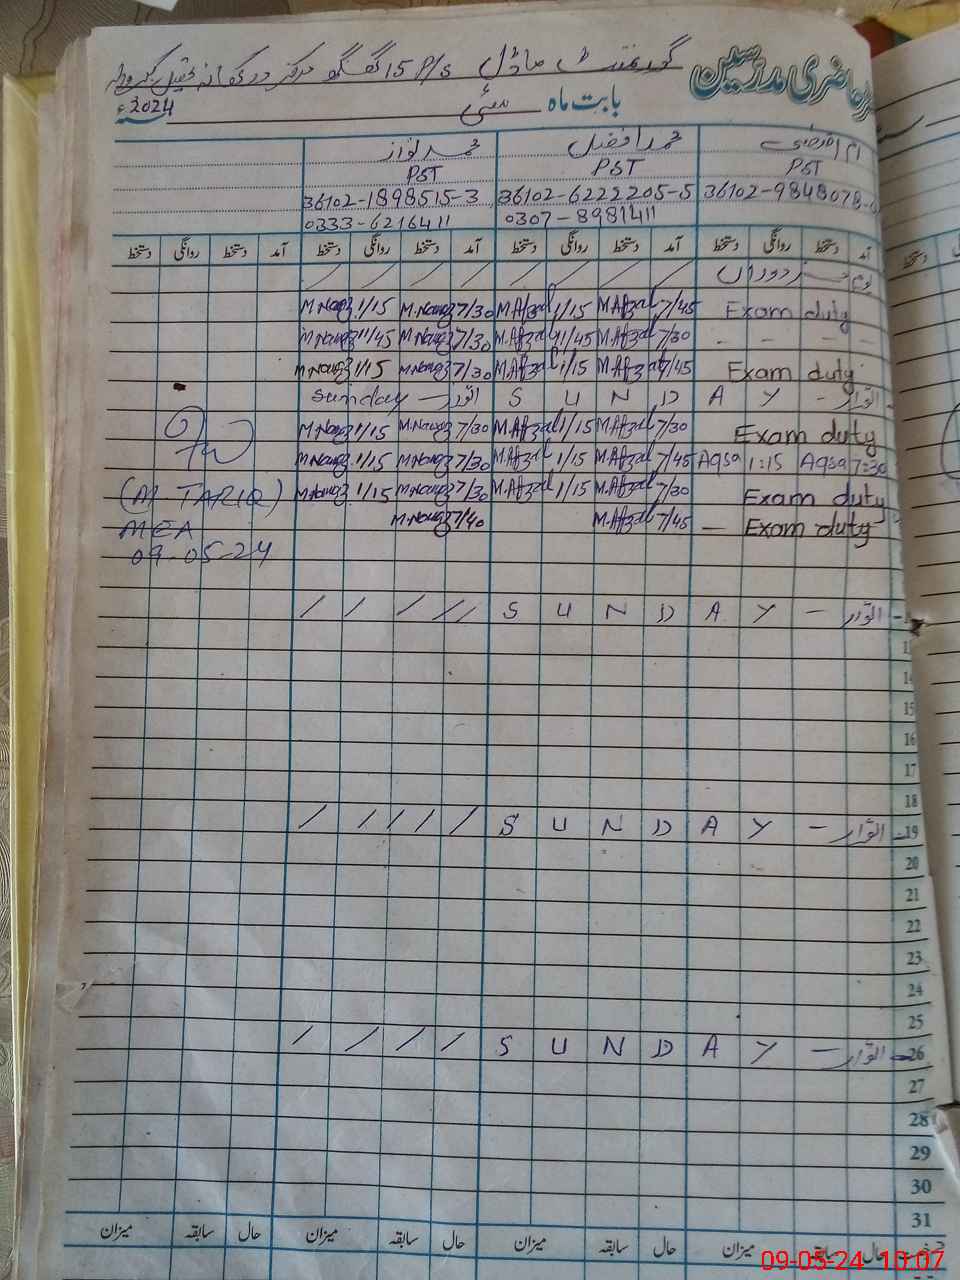 حاضری مدرسین
گورنمنٹ ماڈل P/S 15
بابت ماہ مئی 2024ء
محمد افضل محمد نواز
PST PST PST
36102-9848078- 36102-6222205-5 36102-1898515-3
0307-8981411 0333-6216411
آمد دستخط روانگی دستخط آمد دستخط روانگی دستخط آمد دستخط روانگی دستخط آمد دستخط روانگی دستخط
/ / / / / / / /
M.Nawaz 1/15 M.Nawaz 7/30 M.Afzal 1/15 M.Afzal 7/45 Exam duty
M.Nawaz 11/45 M.Nawaz 7/30 M.Afzal 11/45 M.Afzal 7/30 - - - -
M.Nawaz 1/15 M.Nawaz 7/30 M.Afzal 1/15 M.Afzal 7/45 Exam duty
Sunday — اتوار S U N D A Y - اتوار
M.Nawaz 1/15 M.Nawaz 7/30 M.Afzal 1/15 M.Afzal 7/30 Exam duty
M.Nawaz 1/15 M.Nawaz 7/30 M.Afzal 1/15 M.Afzal 7/45 Aqsa 1:15 Aqsa 7:30
(M. TARIQ) M.Nawaz 1/15 M.Nawaz 7/30 M.Afzal 1/15 M.Afzal 7/30 Exam duty
MEA M.Nawaz 7/40 M.Afzal 7/45 — Exam duty
09-05-24
/ / / // S U N D A Y - اتوار
14
15
16
17
18
/ / / / S U N D A Y - اتوار 19
20
21
22
23
24
25
/ / / / S U N D A Y - اتوار 26
27
28
29
30
31
حال سابقہ میزان حال سابقہ میزان حال سابقہ میزان حال سابقہ میزان
09-05-24 10:07